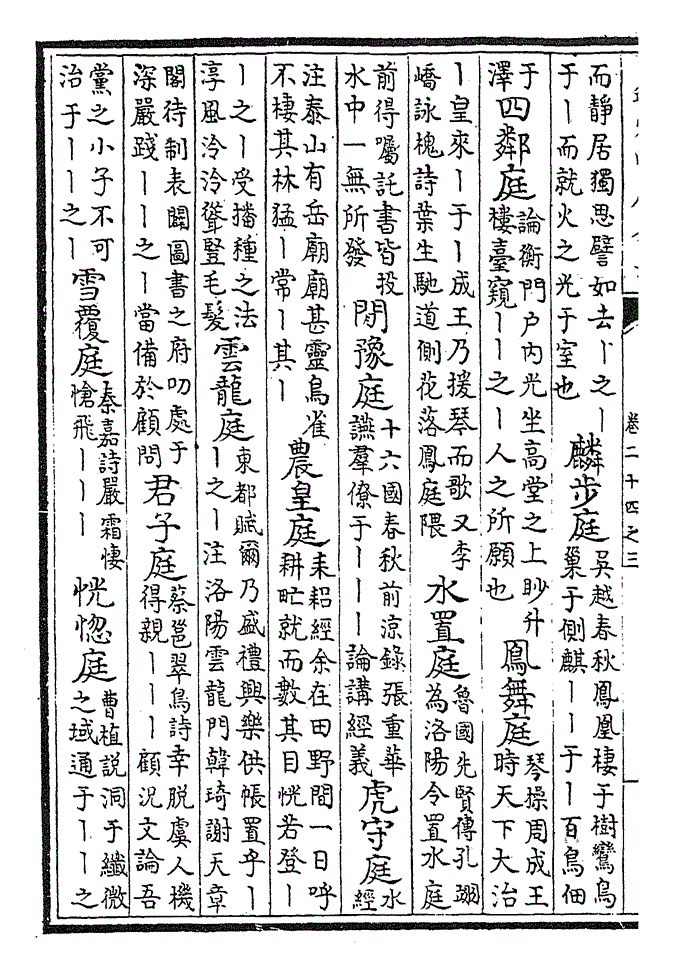 卷二十四之三
而靜居獨思譬如去丨之丨
于丨而就火之光于室也
麟步庭
吳越春秋鳳凰棲于樹鸞鳥
巢于側麒丨丨于丨百鳥佃
于
澤
四鄰庭
論衡門戶内光坐高堂之上眇升
樓臺窺丨丨之丨人之所願也
鳳舞庭
琴操周成王
時天下大治
丨皇來丨于丨成王乃援琴而歌又李
嶠詠槐詩葉生馳道側花落鳳庭隈
水置庭
魯國先賢傳孔翊
為洛陽令置水庭
前得囑託書皆投
水中一無所發
閒豫庭
十六國春秋前涼錄張重華
讌羣僚于丨丨丨論講經義
虎守庭
水
經
注泰山有岳廟廟甚靈鳥雀
不棲其林猛丨常丨其丨
農皇庭
耒耜經余在田野間一日呼
耕甿就而數其目恍若登丨
丨之丨受播種之法
淳風泠泠聳豎毛髮
雲龍庭
東都賦爾乃盛禮興樂供帳置乎丨
丨之丨注洛陽雲龍門韓琦謝天章
閣待制表闥圖書之府叨處于
深嚴踐丨丨之丨當備於顧問
君子庭
蔡邕翠鳥詩幸脫虞人機
得親丨丨丨顧況文論吾
黨之小子不可
治于丨丨之丨
雪覆庭
秦嘉詩嚴霜悽
愴飛丨丨丨
恍惚庭
曹植説洞于纖微
之域通于丨丨之